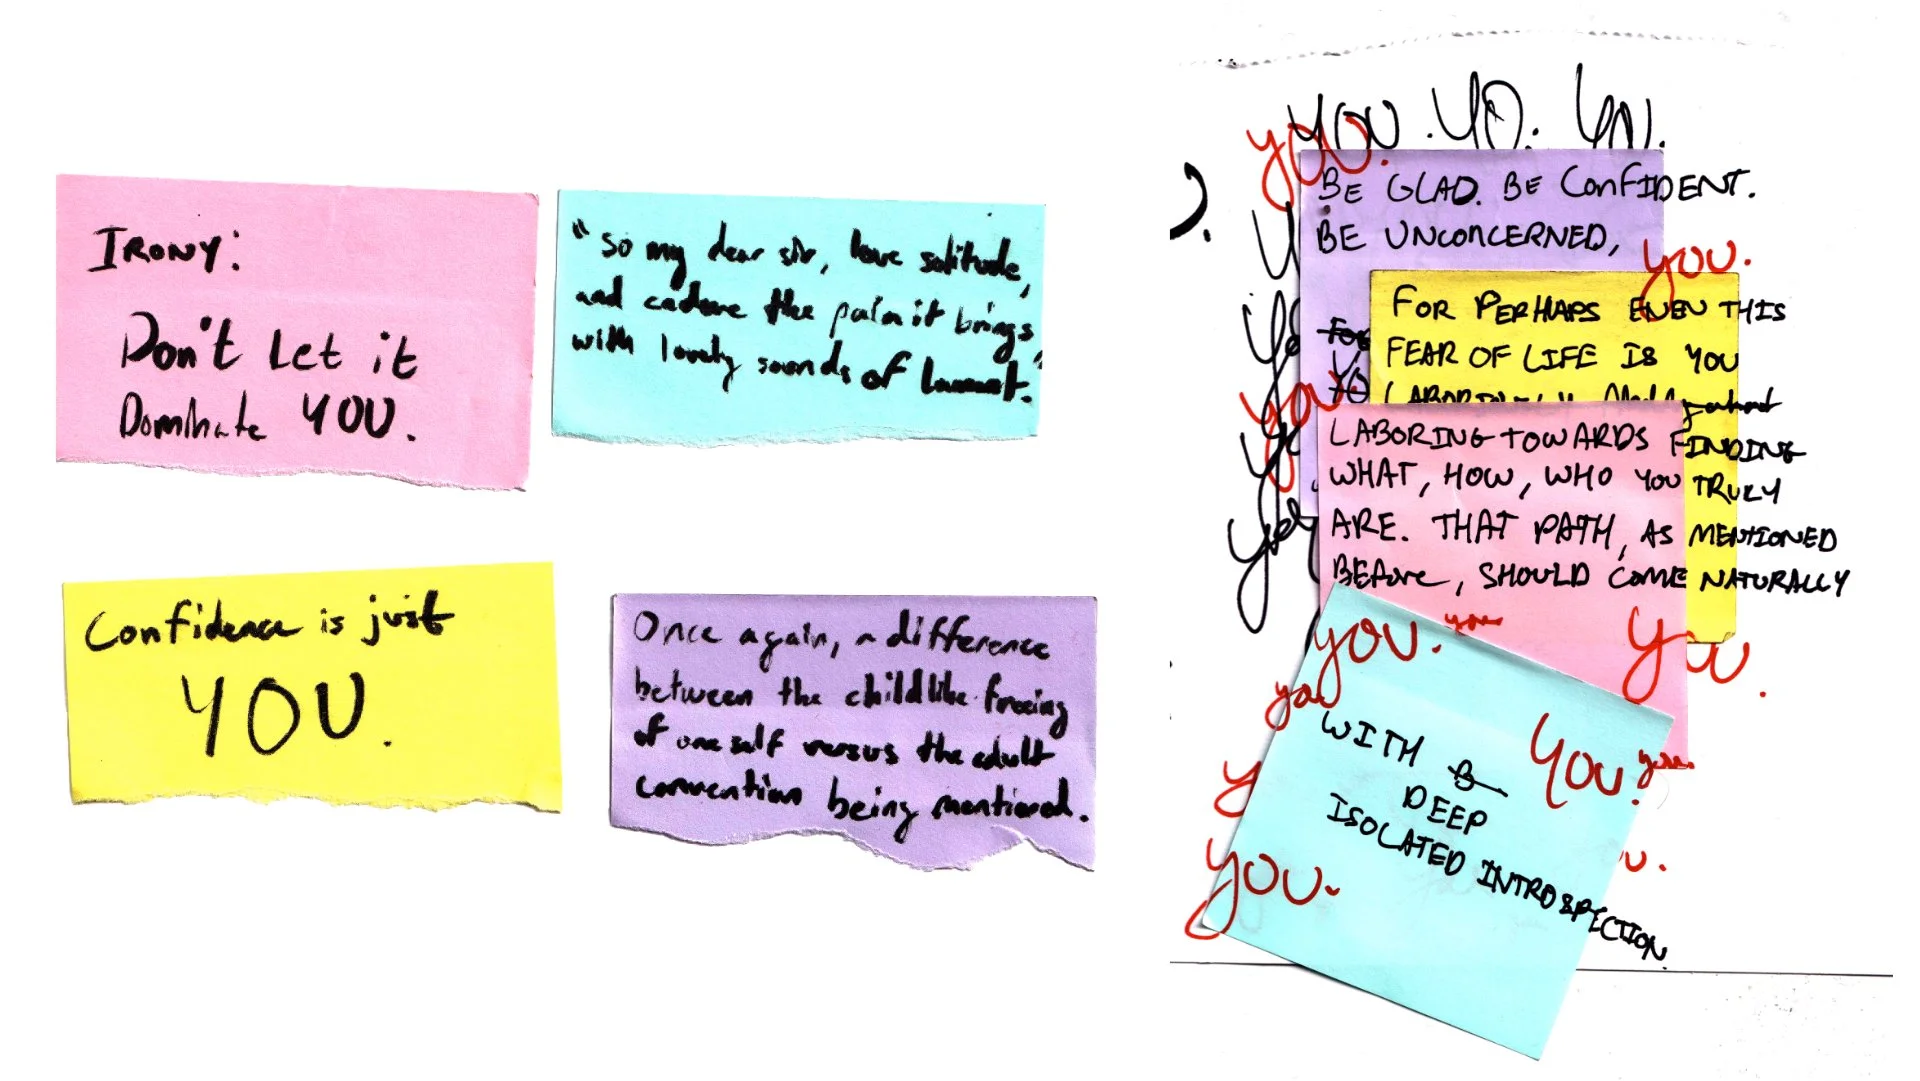 IRONY:
Don't Let it
Dominate YOU.
"so my dear sir, love solitude,
and endure the pain it brings
with lovely sounds of lament."
Confidence is just
YOU.
Once again, a difference
between the childlike freeing
of oneself versus the adult
convention being mentioned.
YOU. YO. YOU.
you.
BE GLAD. BE CONFIDENT.
BE UNCONCERNED,
you.
FOR PERHAPS EVEN THIS
FEAR OF LIFE IS YOU
you.
LABORING TOWARDS FINDING
WHAT, HOW, WHO YOU TRULY
ARE. THAT PATH, AS MENTIONED
BEFORE, SHOULD COME NATURALLY
you. you
you.
you
WITH
YOU. you.
DEEP
ISOLATED INTROSPECTION.
you.